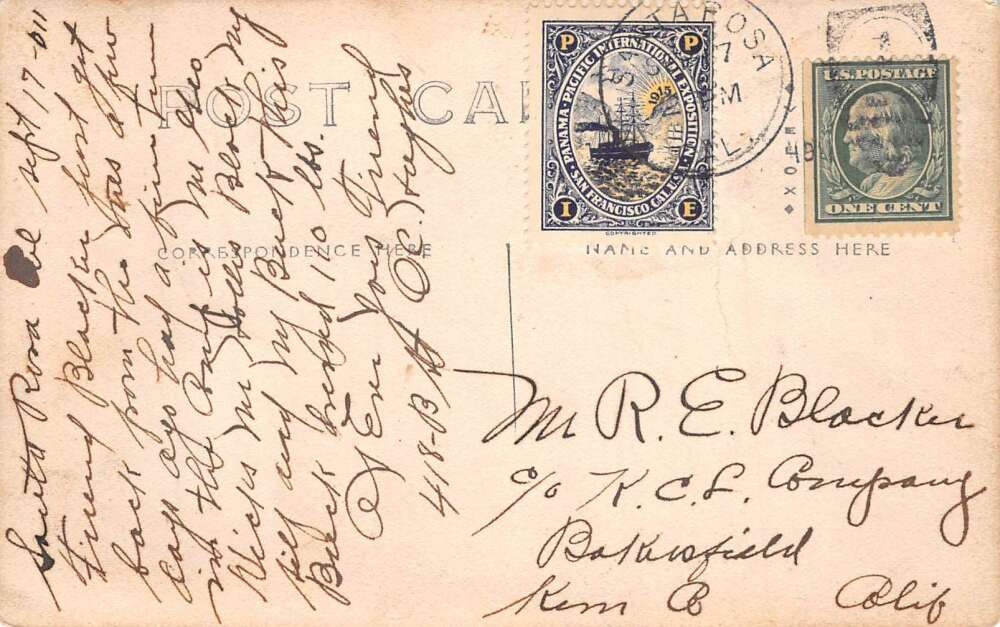 POST CA
CORRESPONDENCE HERE
NAME AND ADDRESS HERE
P P
PANAMA-PACIFIC INTERNATIONAL EXPOSITION.
1915
SAN FRANCISCO CAL. U.S.
I E
COPYRIGHTED
TA ROSA
7
PM
CAL
U.S. POSTAGE
ONE CENT
Santa Rosa Cal Sept 17-011
Friend Blacker just got
back from the was a few
days ago had a fine time
in the Party is Mr Geo
Hicks Mr Block My
self and My Buck this
Buck weighed 110 lbs.
Ever Your Friend
C. Hughes
418-B St
Mr R. E. Blacker
c/o K.C.L. Company
Bakersfield
Kern Co Calif